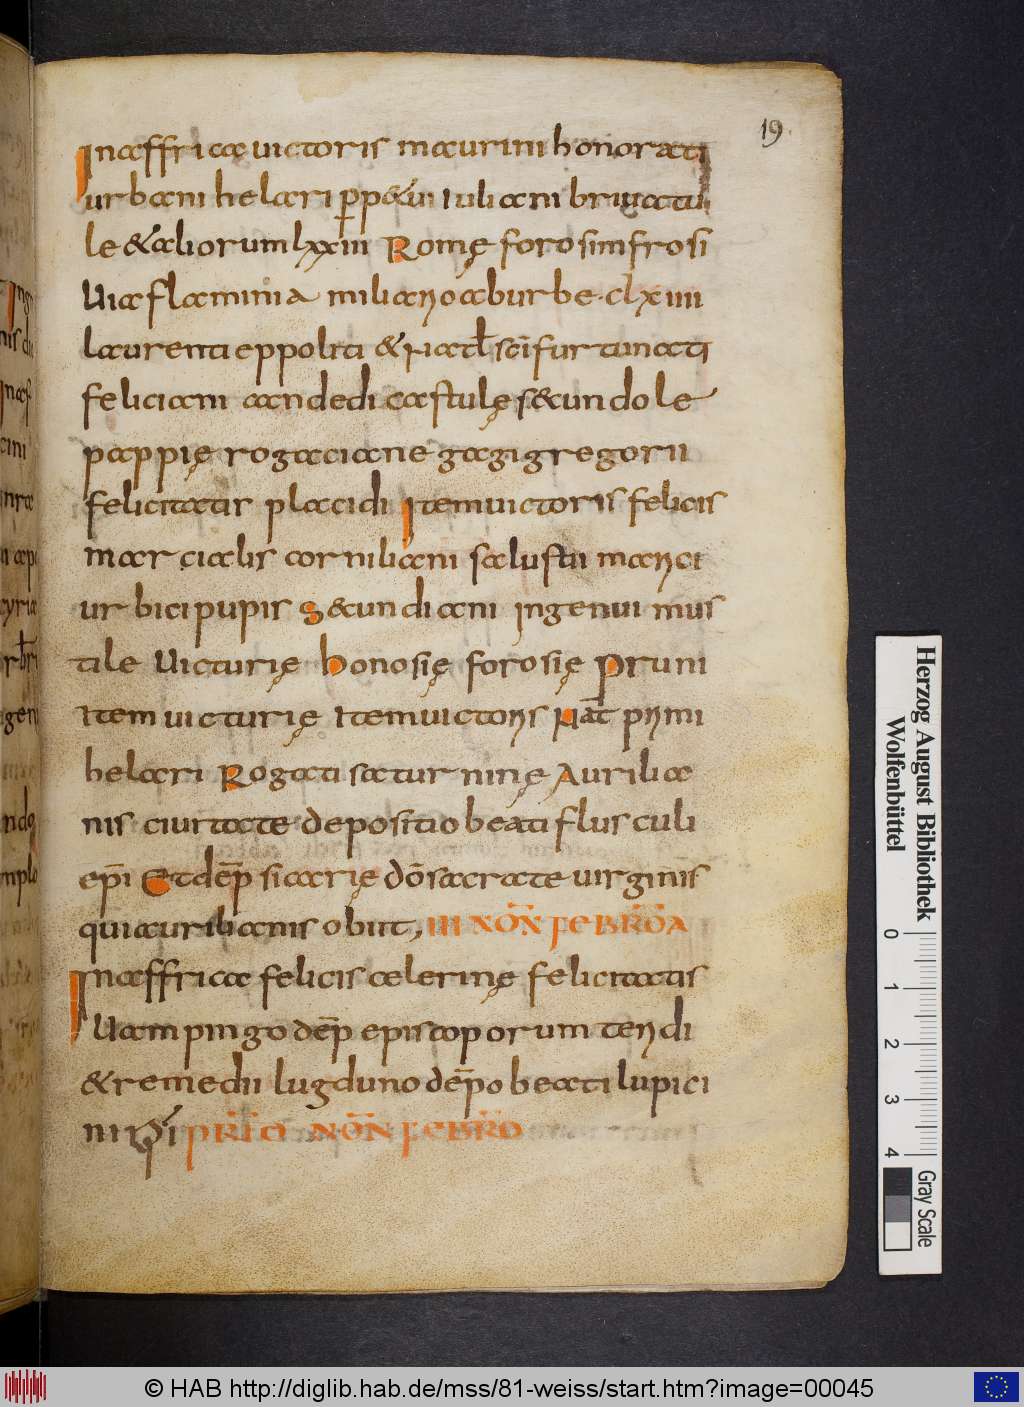 19
In affrica uictoris maurini honorati
urbani helari ꝑp&ui iuliani briuatu
le & aliorum lxxiii Romę foro simfrosi
Uia flaminia miliario ab urbe clxiiii
laurenti eppoliti & nat̄l sc̄i furtunati
feliciani candedi castulę secundole
pappię rogaciane gagi gregorii
felicitatir placidi Item uictoris felicis
marcialis corniliani salustii marici
urbici pupis Secundiani ingenui mus
tile Uicturię honosię forosię Pruni
Item uicturię Item uictoris Nat̄ primi
helari Rogati saturninę Aurilia
nis ciuitate depositio beati flusculi
ep̄i Et dep̄ sicarię dō sacrate uirginis
qui aurilianis obiit, III NOÑ FEBRŌA
In affrica felicis celerinę felicitatis
Uampingo dep̄ episcoporum teridi
& remedii lugduno dep̄o beati lupici
ni ep̄i PRĪD NOÑ FEBRŌ
Herzog August Bibliothek
Wolfenbüttel
0 1 2 3 4
Gray Scale
© HAB http://diglib.hab.de/mss/81-weiss/start.htm?image=00045